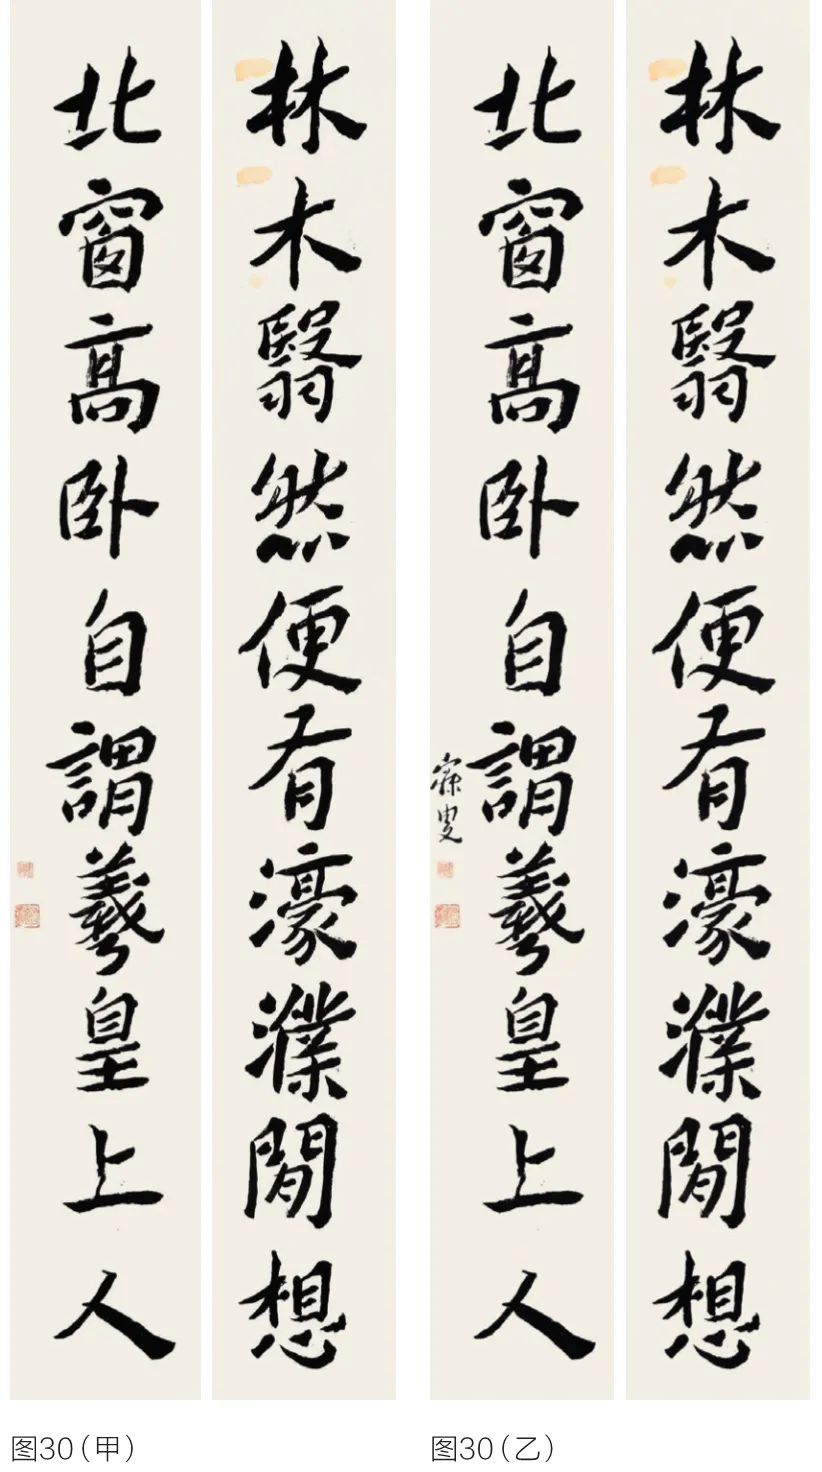 林木翳然便有濠濮閒想
北窗高卧自謂羲皇上人
图30（甲）
林木翳然便有濠濮閒想
北窗高卧自謂羲皇上人
寐叟
图30（乙）